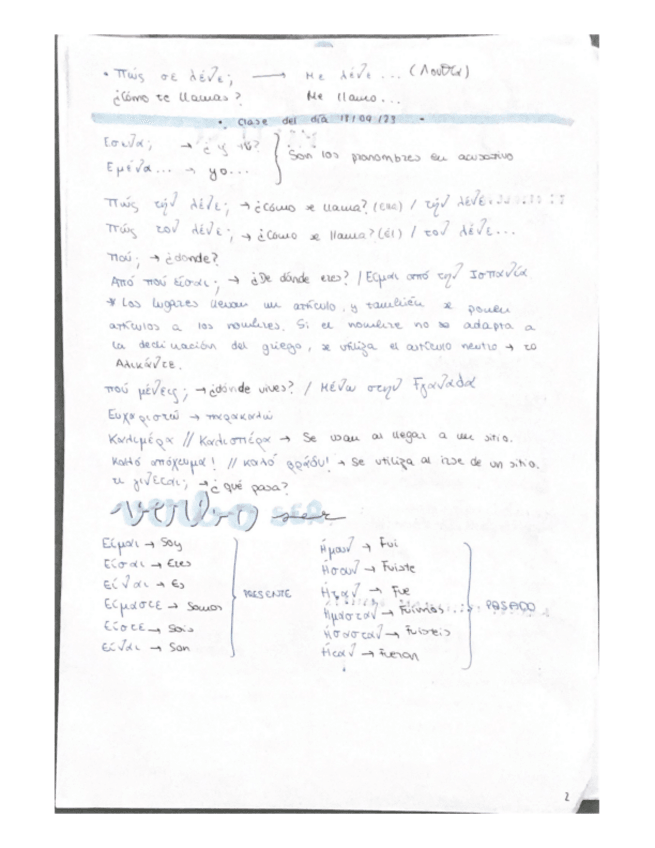 • Πώς σε λένε; → Με λένε ... (Λουθία)
¿Cómo te llamas? Me llamo...
• Clase del día 18/09/23 -
Εσένα; → ¿y tú?
Εμένα... → yo...
Son los pronombres en acusativo
Πώς την λένε; → ¿Cómo se llama? (ella) / την λένε...
Πώς τον λένε; → ¿Cómo se llama? (él) / τον λένε...
πού; → ¿donde?
Από πού είσαι; → ¿De dónde eres? / Είμαι από την Ισπανία
* Los lugares llevan un artículo, y también se ponen
artículos a los nombres. Si el nombre no se adapta a
la declinación del griego, se utiliza el artículo neutro → το
Αλικάντε.
πού μένεις; → ¿dónde vives? / Μένω στην Γρανάδα
Ευχαριστώ → παρακαλώ
Καλημέρα // Καλισπέρα → Se usan al llegar a un sitio.
καλό απόγευμα! // καλό βράδυ! → Se utiliza al irse de un sitio.
τι γίνεται; → ¿qué pasa?
verbo ser
Είμαι → Soy
Είσαι → Eres
Είναι → Es
Είμαστε → Somos
Είστε → Sois
Είναι → Son
PRESENTE
Ήμουν → Fui
Ήσουν → Fuiste
Ήταν → Fue
Ήμασταν → Fuimos
Ήσασταν → Fuisteis
Ήταν → Fueron
PASADO
2